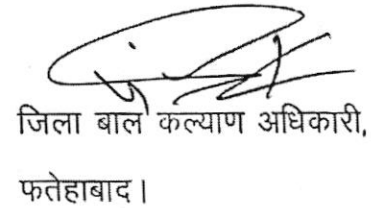 जिला बाल कल्याण अधिकारी,
फतेहाबाद।